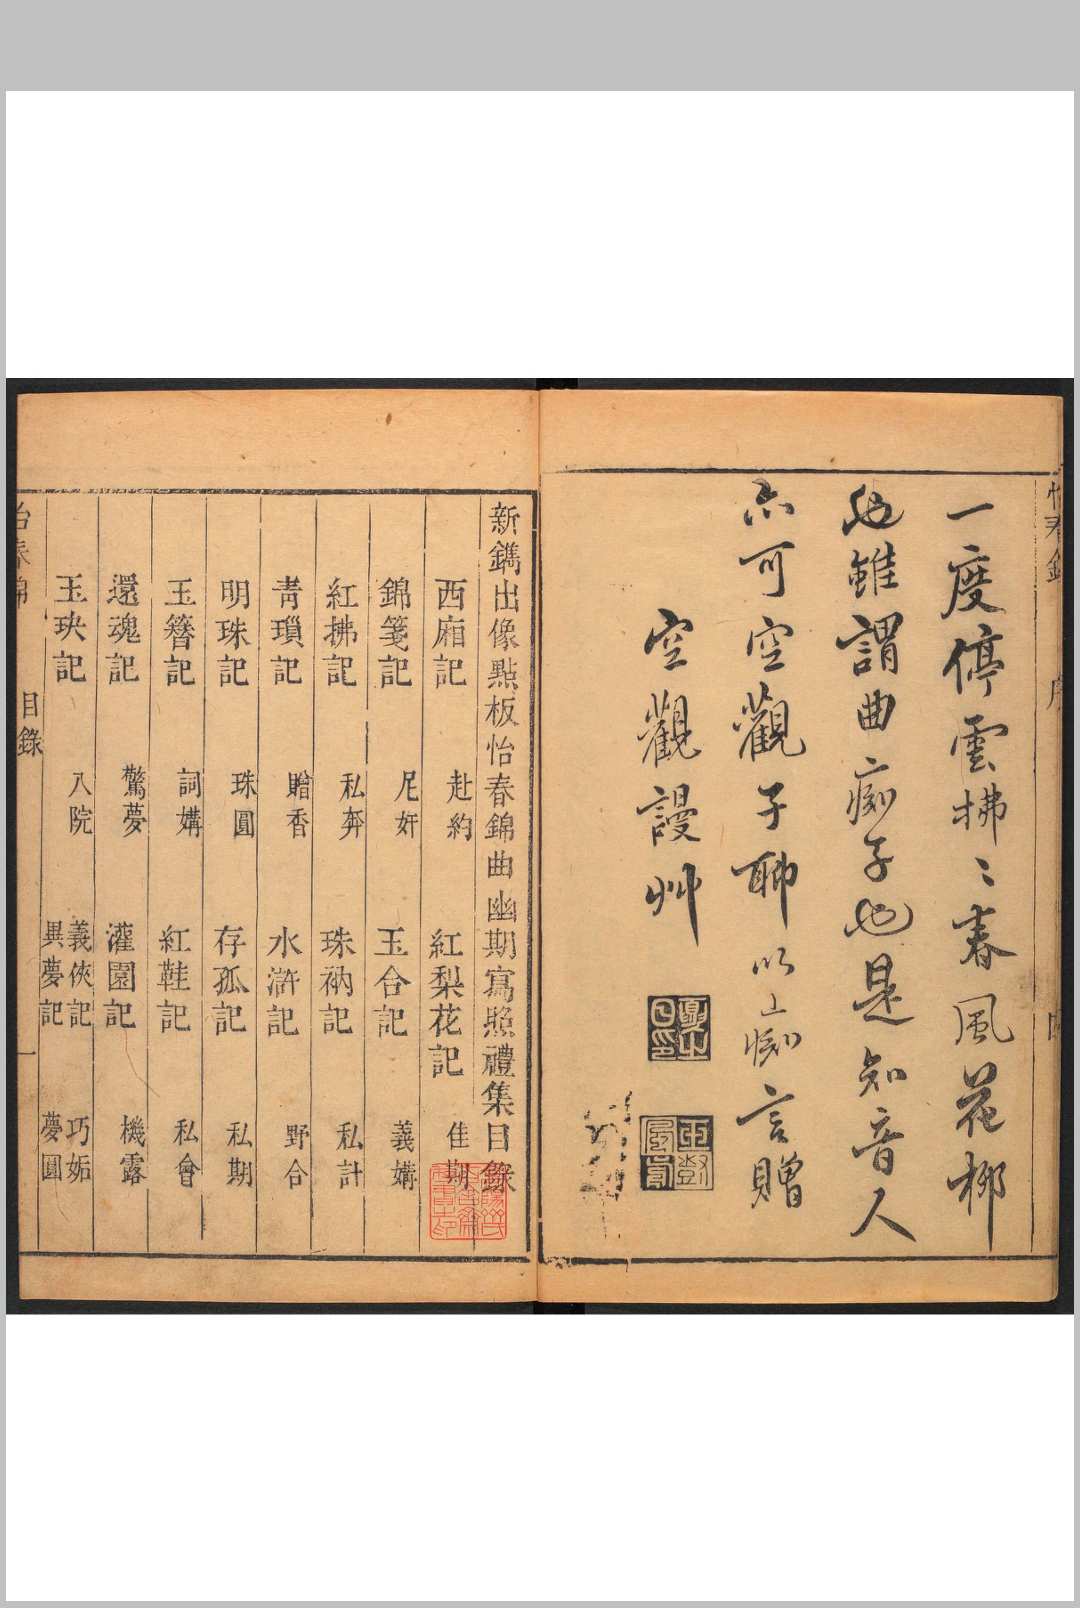 一度停雲拂〻春風花柳
也雖謂曲痴子也是知音人
亦可空觀子聊以此痴言贈
空觀謾艸
新鐫出像點板怡春錦曲幽期寫照禮集目錄
西廂記 赴約 紅梨花記 佳期
錦箋記 尼奸 玉合記 義媾
紅拂記 私奔 珠衲記 私計
青瑣記 贈香 水滸記 野合
明珠記 珠圓 存孤記 私期
玉簪記 詞媾 紅鞋記 私會
還魂記 驚夢 灌園記 機露
玉玦記 入院 義俠記 巧姤
異夢記 夢圓
怡春錦 目錄 一